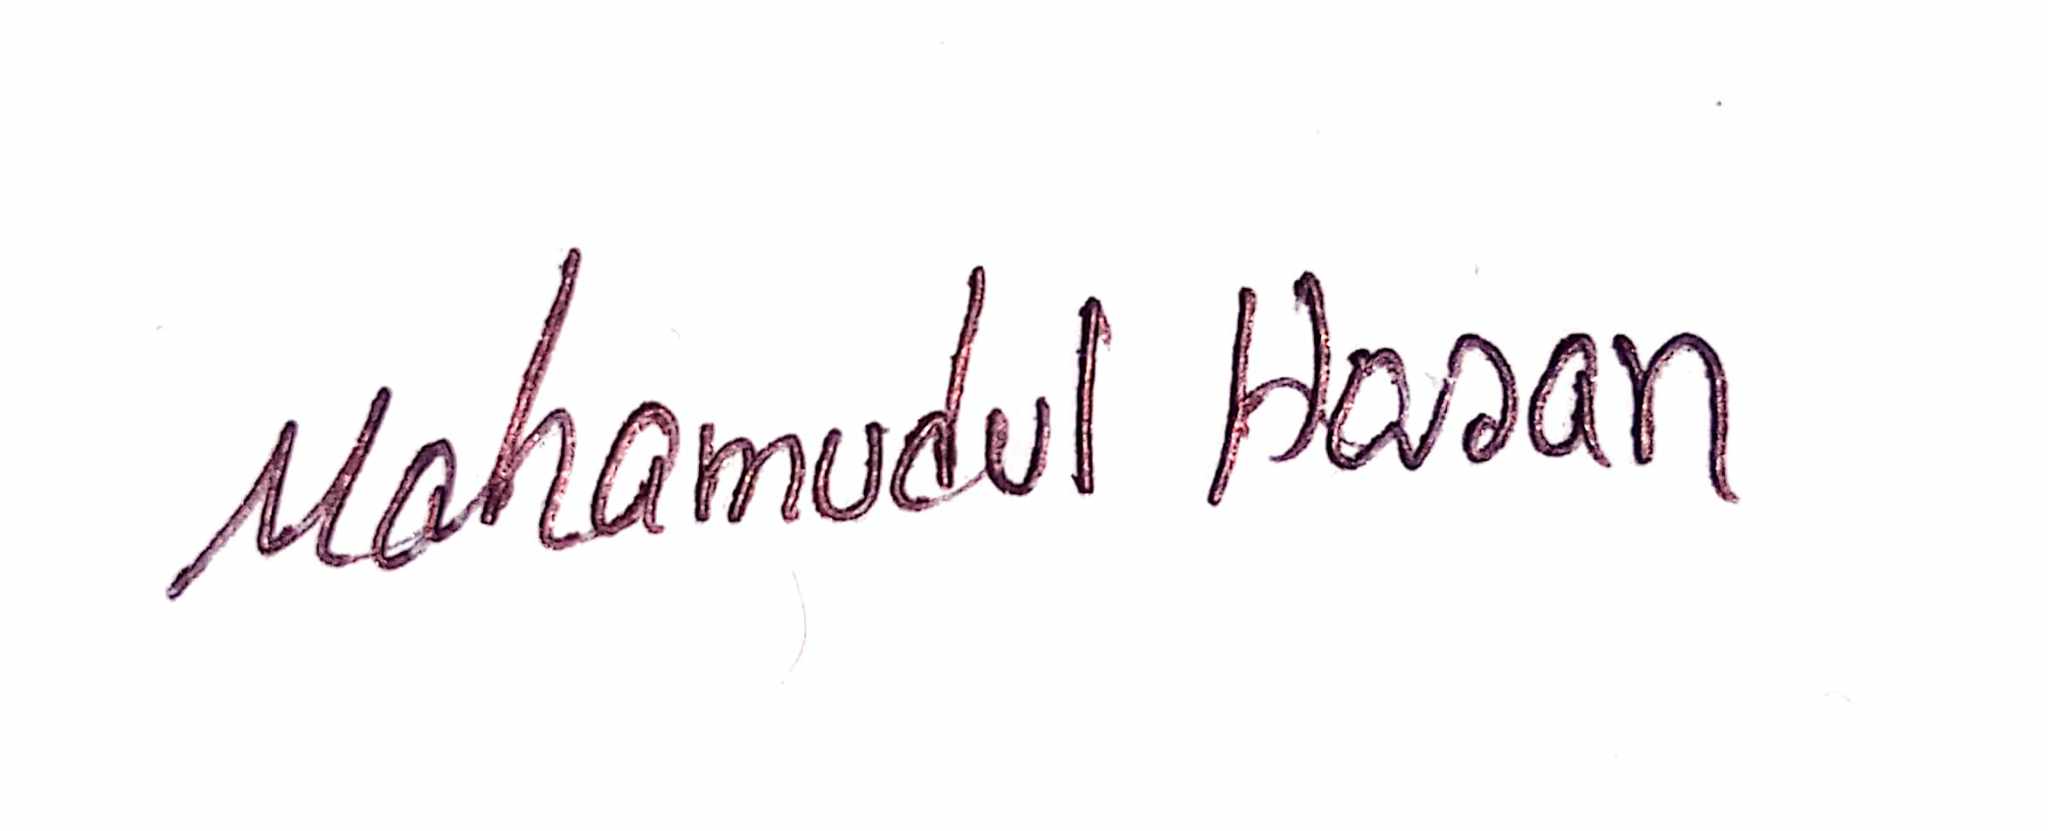 Mahamudul Hasan